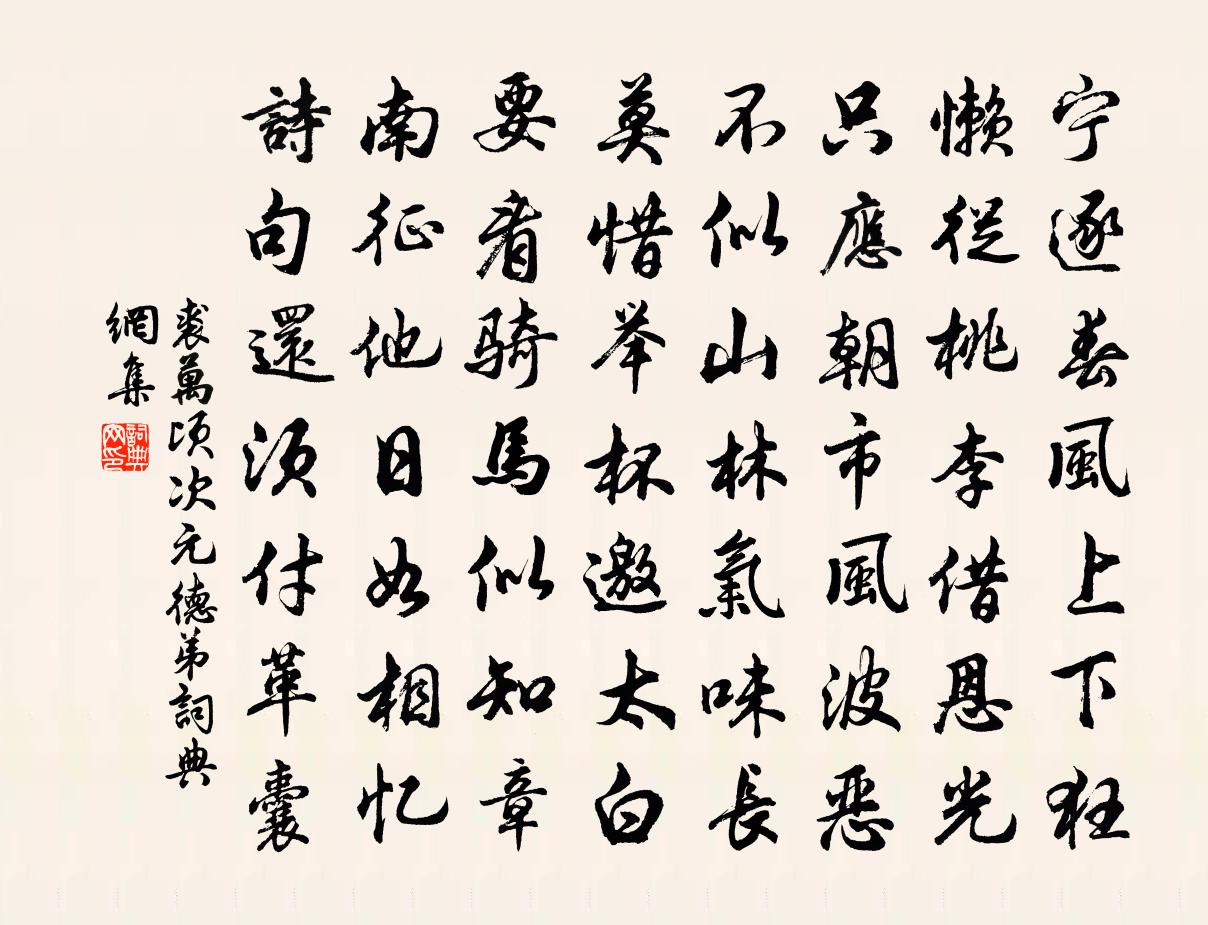 宁逐春風上下狂
懶從桃李借恩光
只應朝市風波惡
不似山林氣味長
莫惜举杯邀太白
要看騎馬似知章
南征他日如相忆
詩句還須付革囊
裘萬頃次元德弟詞典
網集
詞典网印